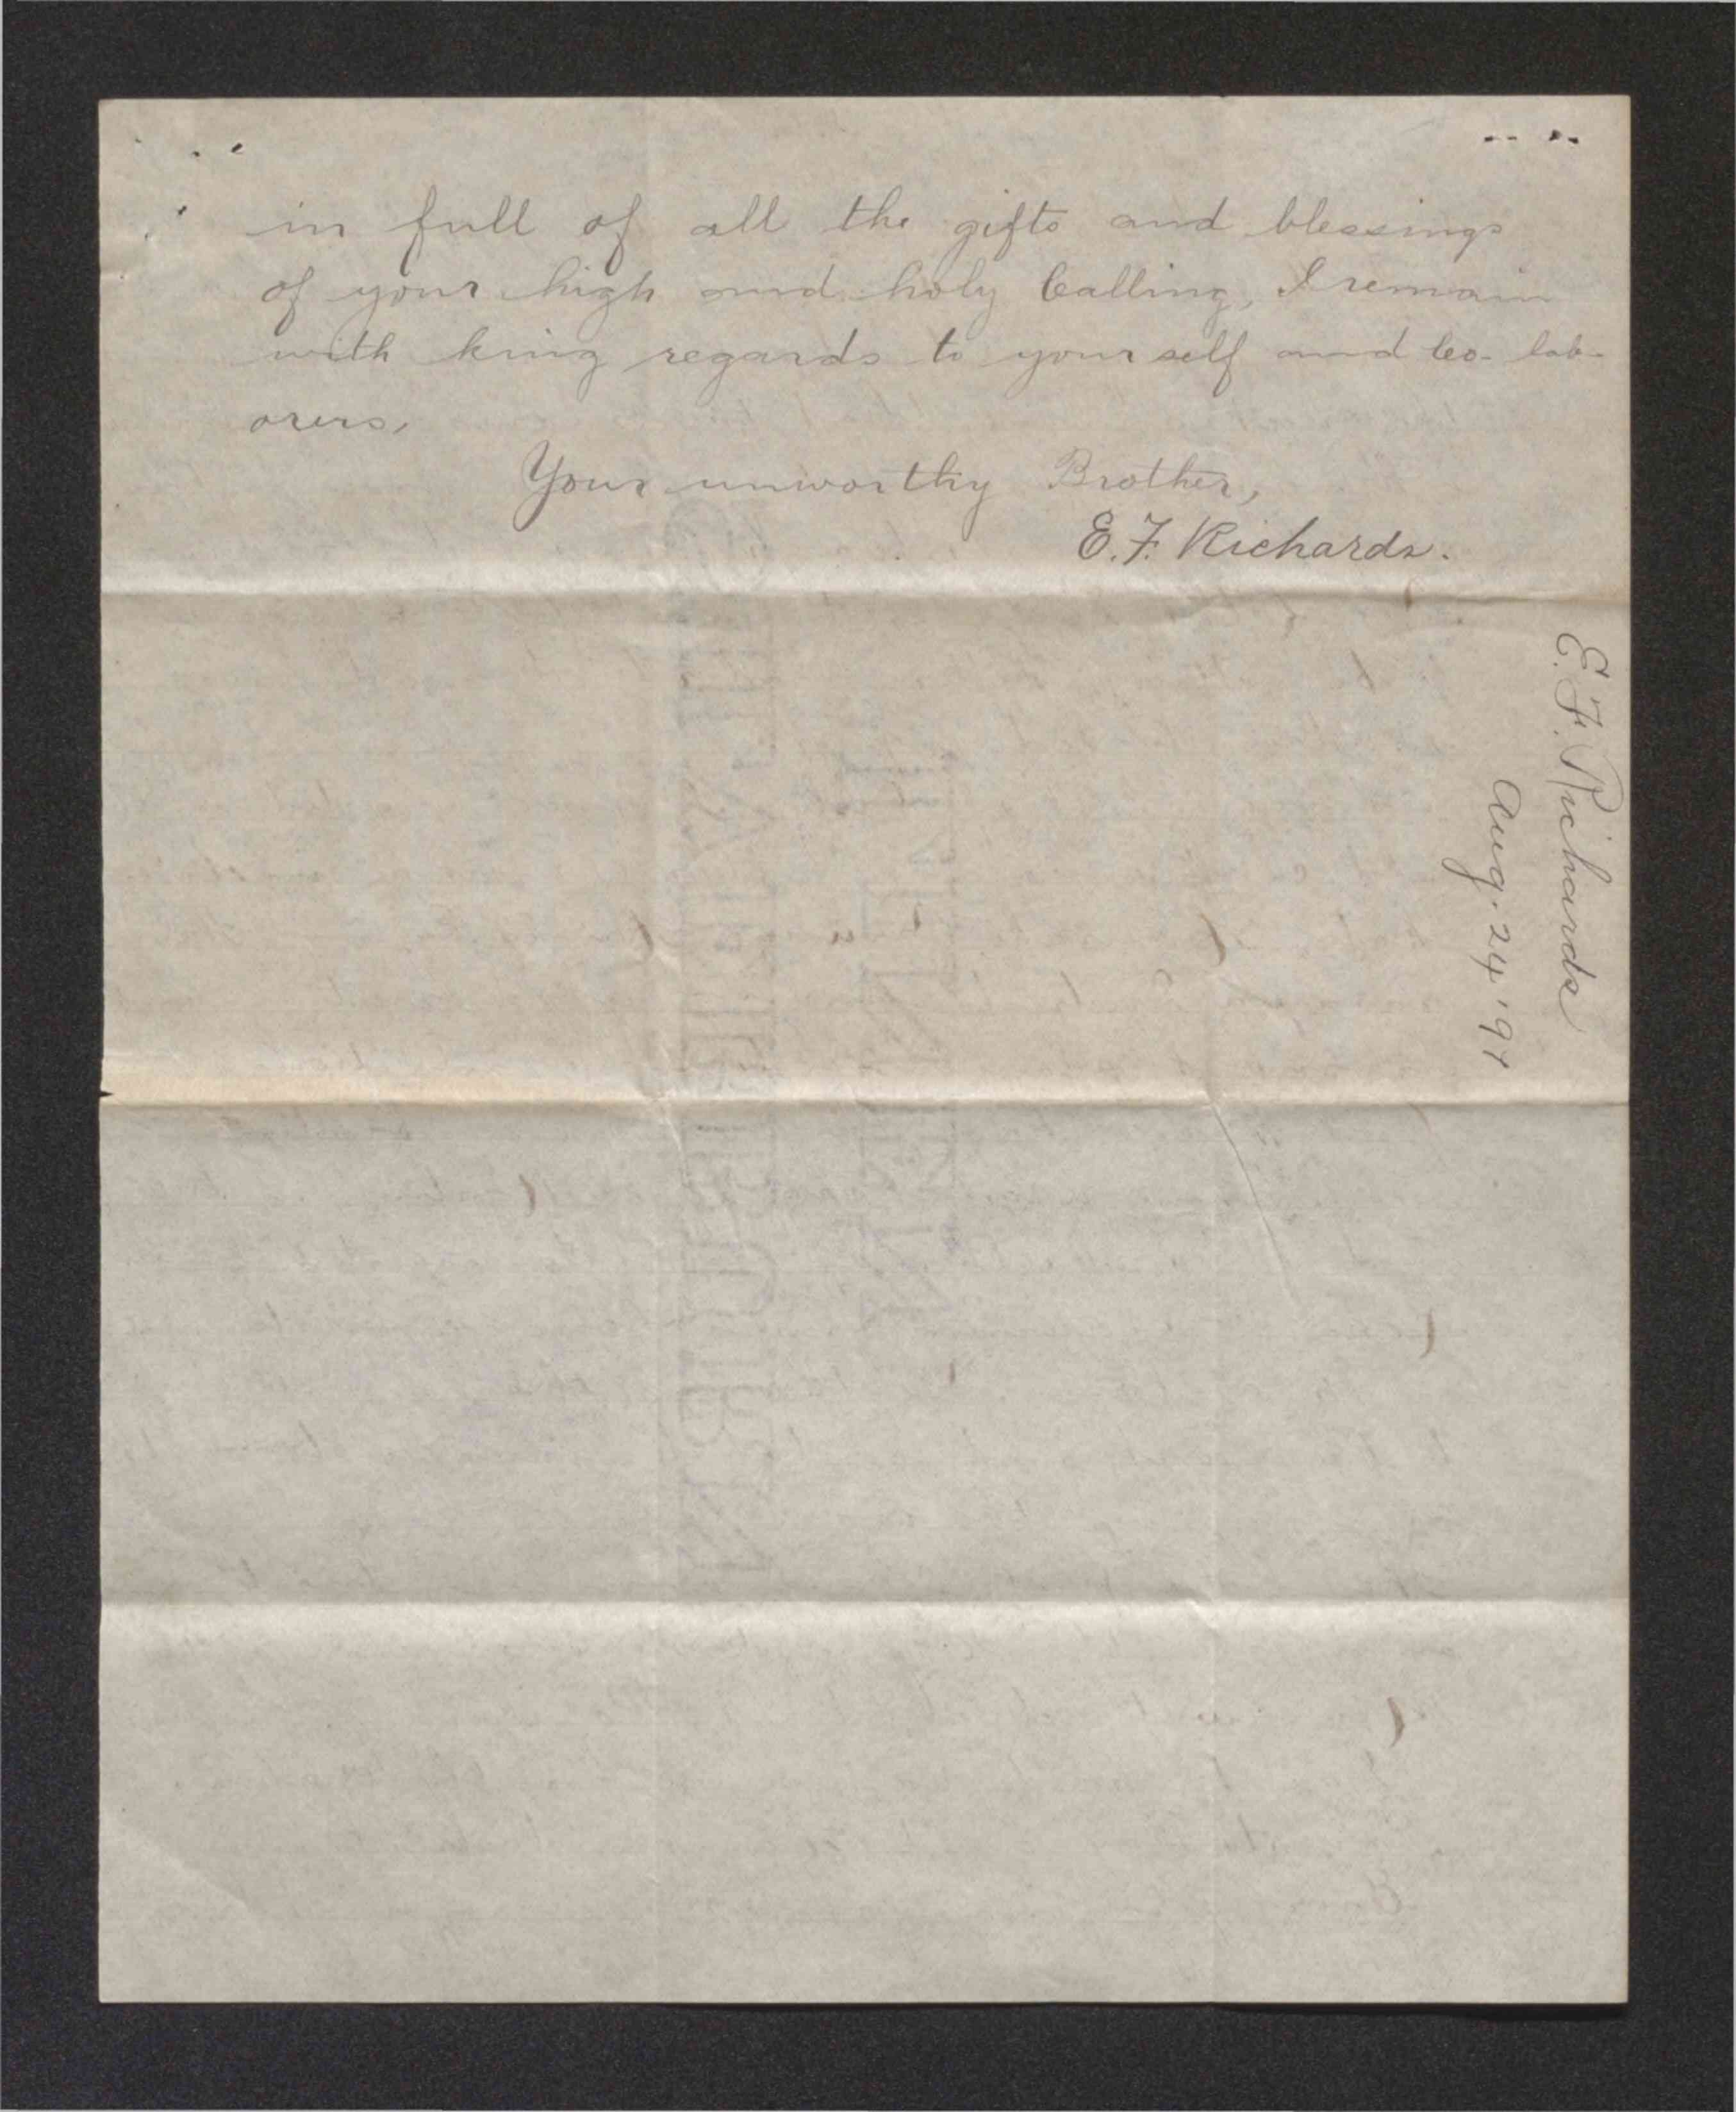 in full of all the gifts and blessings
of your high and holy Calling, I remain
with king regards to yourself and Co-lab-
orers,
Your unworthy Brother,
E. F. Richards.
E. F. Richards
Aug. 24 '91